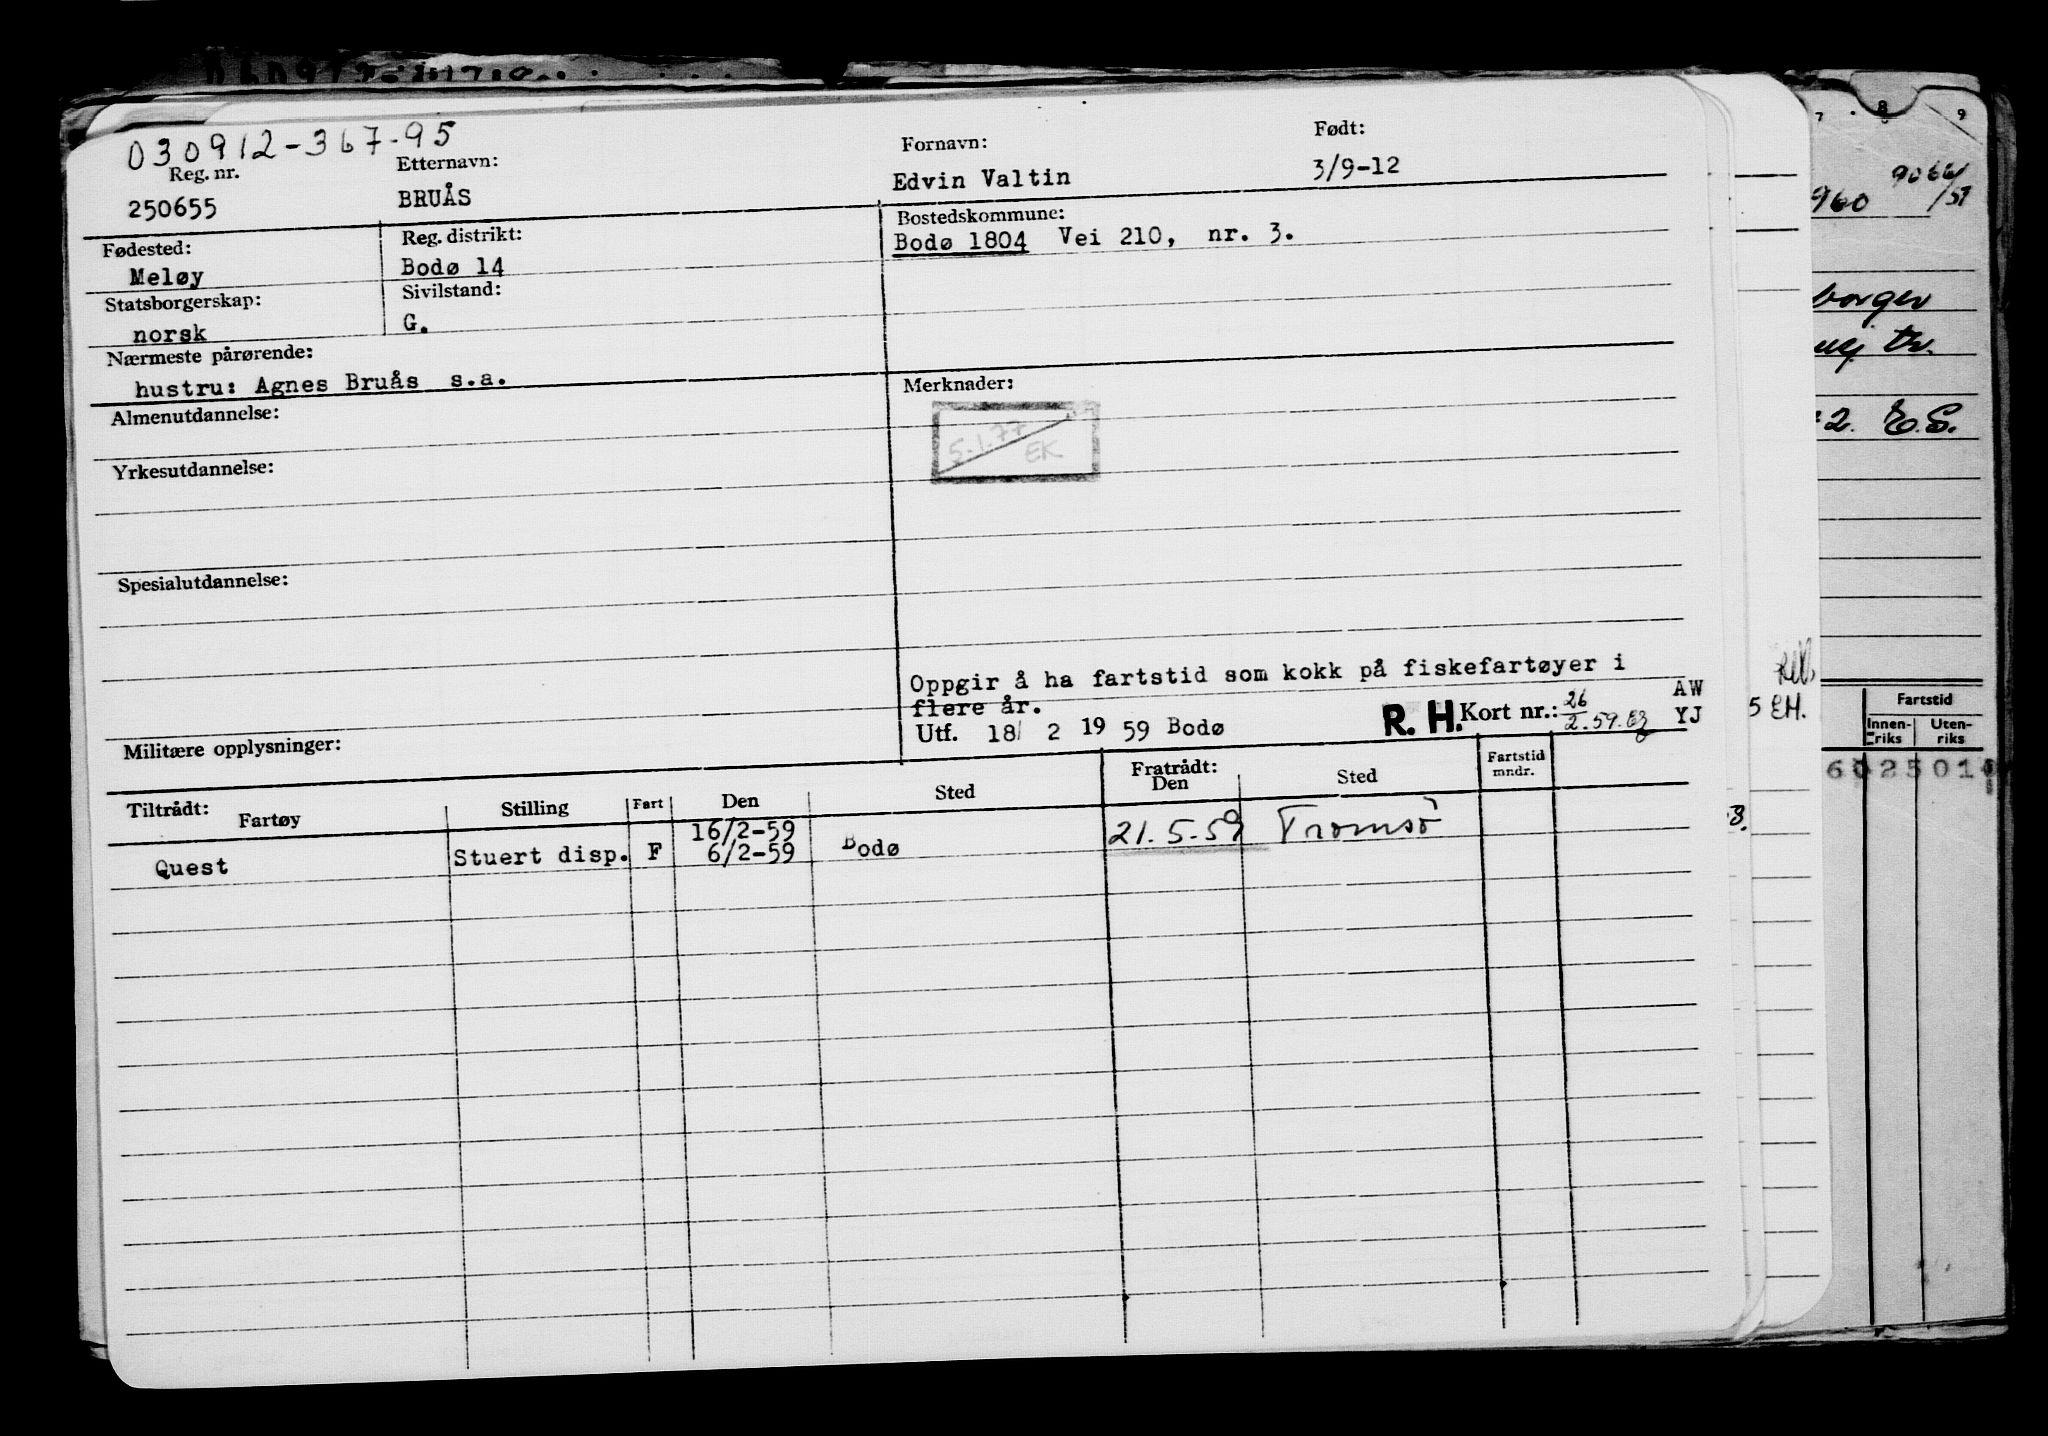 030912-367-95
Reg. nr. Etternavn: Fornavn: Født:
250655 BRUÅS Edvin Valtin 3/9-12
Fødested: Reg. distrikt: Bostedskommune:
Meløy Bodø 14 Bodø 1804 Vei 210, nr. 3.
Statsborgerskap: Sivilstand:
norsk G.
Nærmeste pårørende:
hustru: Agnes Bruås s.a.
Merknader:
Almenutdannelse:
5.1.77
EK
Yrkesutdannelse:
Spesialutdannelse:
Oppgir å ha fartstid som kokk på fiskefartøyer i
flere år.
AW
Utf. 18/ 2 19 59 Bodø R. H. Kort nr.: 26/2.59. YJ
Militære opplysninger:
Tiltrådt: Fratrådt: Fartstid
Fartøy Stilling Fart Den Sted Den Sted mndr.
16/2-59
Quest Stuert disp. F 6/2-59 Bodø 21.5.59 Tromsø
7 8 9
960 9066/57
borger
tr.
2. E.S.
5 EH.
Fartstid
Innen- Uten-
riks riks
6025010
8.